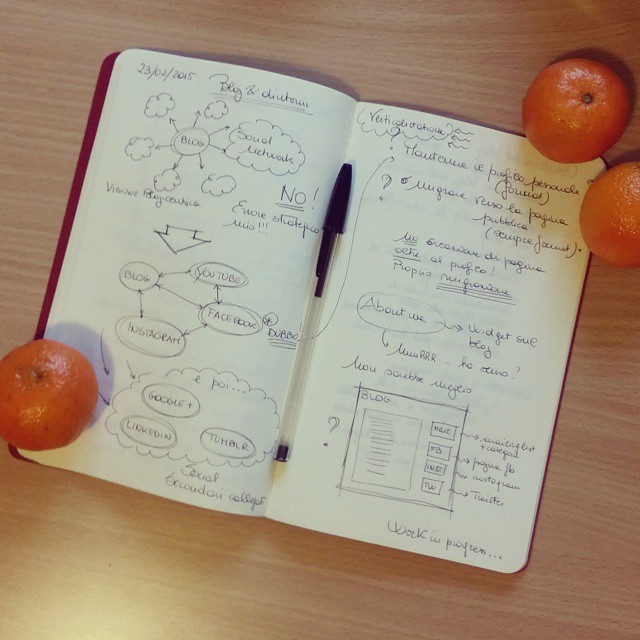 23/02/2015
Blog & dintorni
BLOG
Social
Network
Visione Blogcentrica
NO!
Errore strategico
mio!!!
BLOG
YOUTUBE
FACEBOOK
DUBBIO
INSTAGRAM
e poi...
GOOGLE+
LINKEDIN
TUMBLR
Social
secondari collegati
?
Mantenere il profilo personale
?
Migrare verso la pagina
pubblica
(sempre
no creazione di pagina
oltre al profilo!
Proprio migrazione
About me
Widget sul
blog
MmmRRR... ha senso?
Non sarebbe meglio
?
BLOG
FB
INST
TW
mailing list
pagina fb
instagram
Twitter
Work in progress...